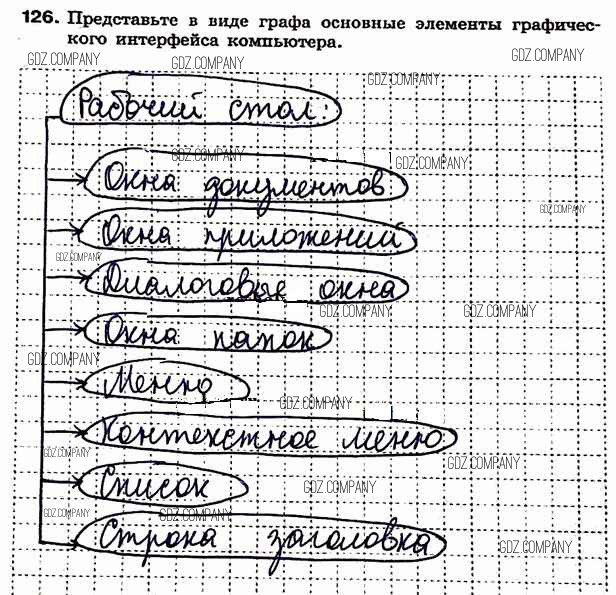 126. Представьте в виде графа основные элементы графичес-
кого интерфейса компьютера.
GDZ.COMPANY GDZ.COMPANY GDZ.COMPANY
GDZ.COMPANY
Рабочий стол.
GDZ.COMPANY GDZ.COMPANY
Окна документов
GDZ.COMPANY
Окна приложений
GDZ.COMPANY
Диалоговые окна
GDZ.COMPANY GDZ.COMPANY
Окна папок
GDZ.COMPANY
Меню
GDZ.COMPANY
Контекстное меню
GDZ.COMPANY GDZ.COMPANY
Список
GDZ.COMPANY
GDZ.COMPANY GDZ.COMPANY
Строка заголовка
GDZ.COMPANY